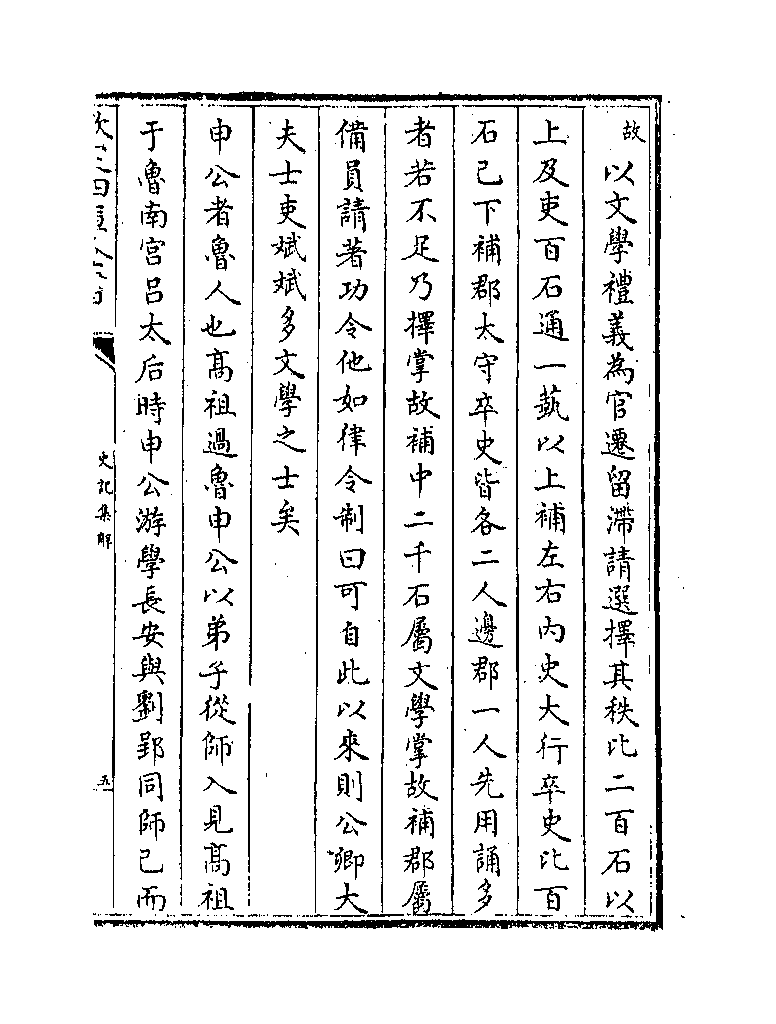 故以文學禮義為官遷留滯請選擇其秩比二百石以
上及吏百石通一藝以上補左右內史大行卒史比百
石已下補郡太守卒史皆各二人邊郡一人先用誦多
者若不足乃擇掌故補中二千石屬文學掌故補郡屬
備員請著功令他如律令制曰可自此以來則公卿大
夫士吏斌斌多文學之士矣
申公者魯人也高祖過魯申公以弟子從師入見高祖
于魯南宮呂太后時申公游學長安與劉郢同師已而
史記集解
五